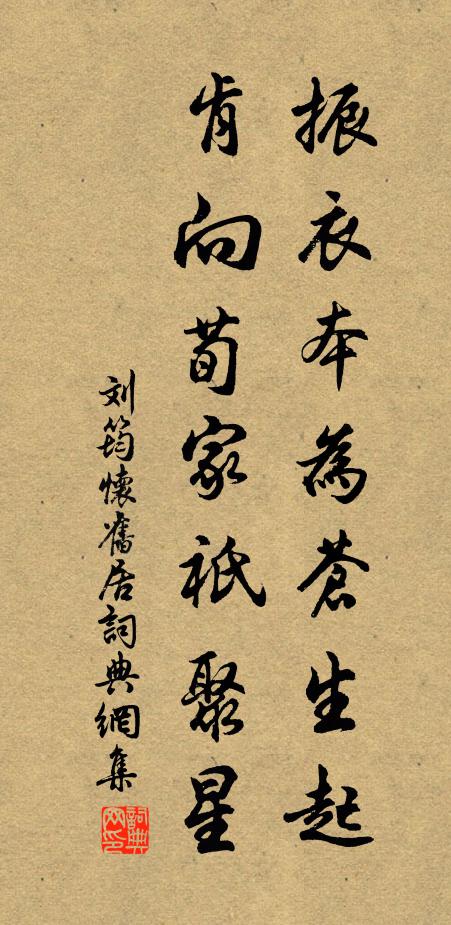 振衣本為蒼生起
肯向荀家祇聚星
刘筠懷舊居詞典網集
詞典网印